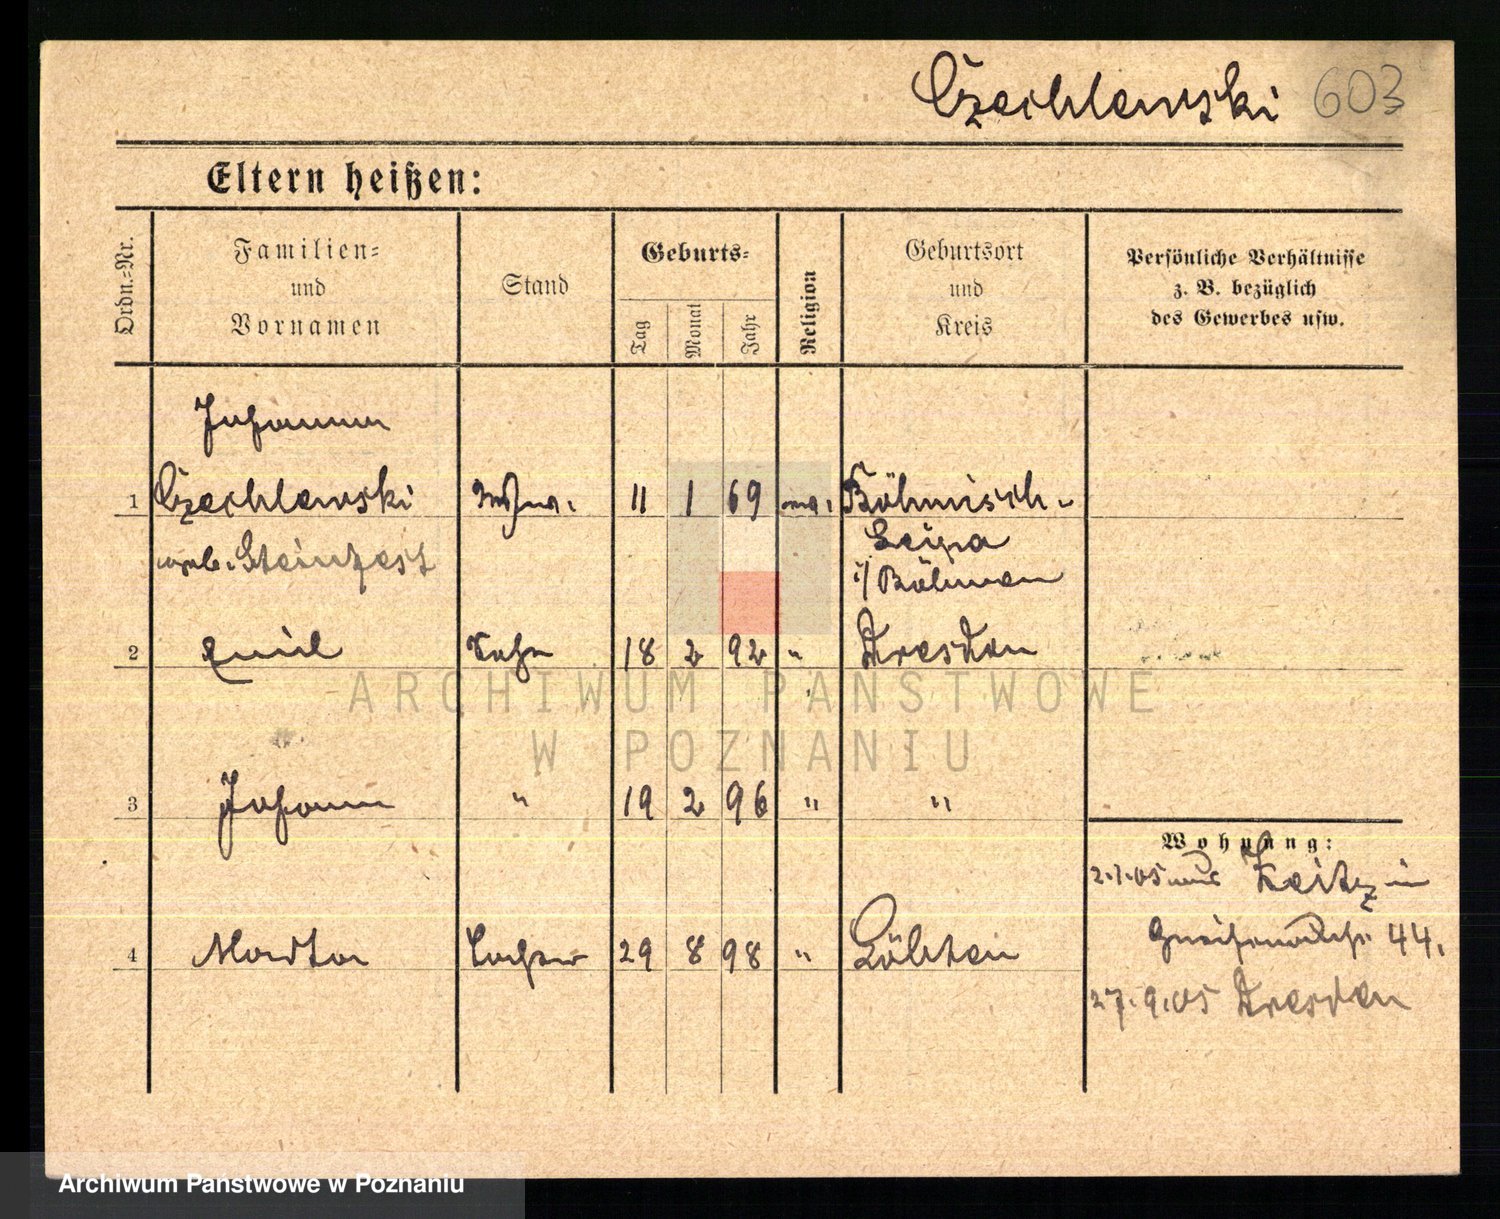 Czechlewski 603
Eltern heißen:
Ordn.-Nr.
Familien-
und
Vornamen
Stand
Geburts-
Tag
Monat
Jahr
Religion
Geburtsort
und
Kreis
Persönliche Verhältnisse
z. B. bezüglich
des Gewerbes usw.
Johann
1 Czechlewski 11 1 69 Böhmisch-
geb. Steinfest Leipa
i/ Böhmen
2 Emil Sohn 18 2 92 " Dresden
ARCHIWUM PAŃSTWOWE
W POZNANIU
3 Johann " 19 2 96 " "
Wohnung:
2.1.05 aus Zeitz in
44.
4 Martha Tochter 29 8 98 " Löbtau
27.9.05 Dresden
Archiwum Państwowe w Poznaniu